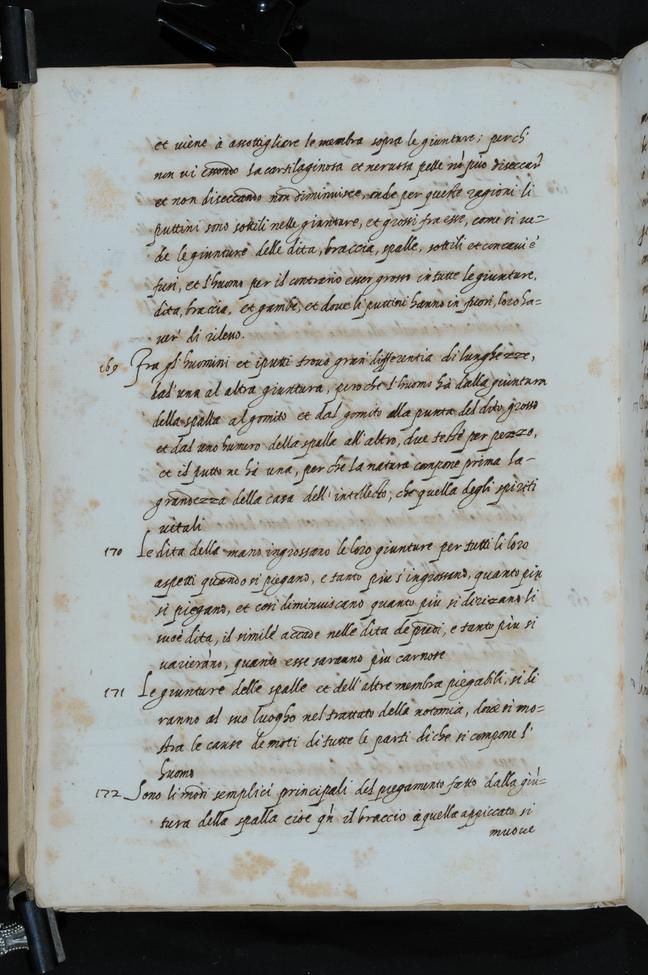 et viene à assottigliare le membra sopra le giunture; perch
non vi essendo la cartilaginosa et nervosa pelle nō può diseccarsi
et non diseccando non diminuisce, onde per queste ragioni li
puttini sono sottili nelle giunture, et grossi fra esse, come si ve=
de le giunture delle dita, braccia, spalle, sottili et concavi è
fusi, et l'huomo per il contrario esser grosso in tutte le giunture,
dita, braccia, et gambe, et dove li puttini hanno in fuori, loro ha=
ver di rilevo.
169 Fra gl' huomini et i putti trovo gran differentia di lunghezze,
dal' una al altra giuntura, però che l'huomo hà dalla giuntura
della spalla al gomito et dal gomito alla punta del dito grosso
et dal uno humero della spalla all' altro, due teste per pezzo,
et il putto ne hà una, per che la natura compone prima la-
grandezza della casa dell' intelletto, che quella degli spiriti
vitali
170 Le dita della mano ingrossano le loro giunture per tutti li loro
aspetti quando si piegano, e tanto più s'ingrossano, quanto più
si piegano, et così diminuiscano quanto più si dirizano li
suoè dita, il simile accade nelle dita de piedi, e tanto più si
varierāno, quanto esse saranno più carnose
171 Le giunture delle spalle et dell' altre membra piegabili, si di
ranno al suo luogho nel trattato della notomia, dove si mo=
stra le cause de moti di tutte le parti di che si compone l'
huomo
172 Sono li moti semplici principali del piegamento fatto dalla giū=
tura della spalla cioè qñ il braccio a quella appiccato si
muove